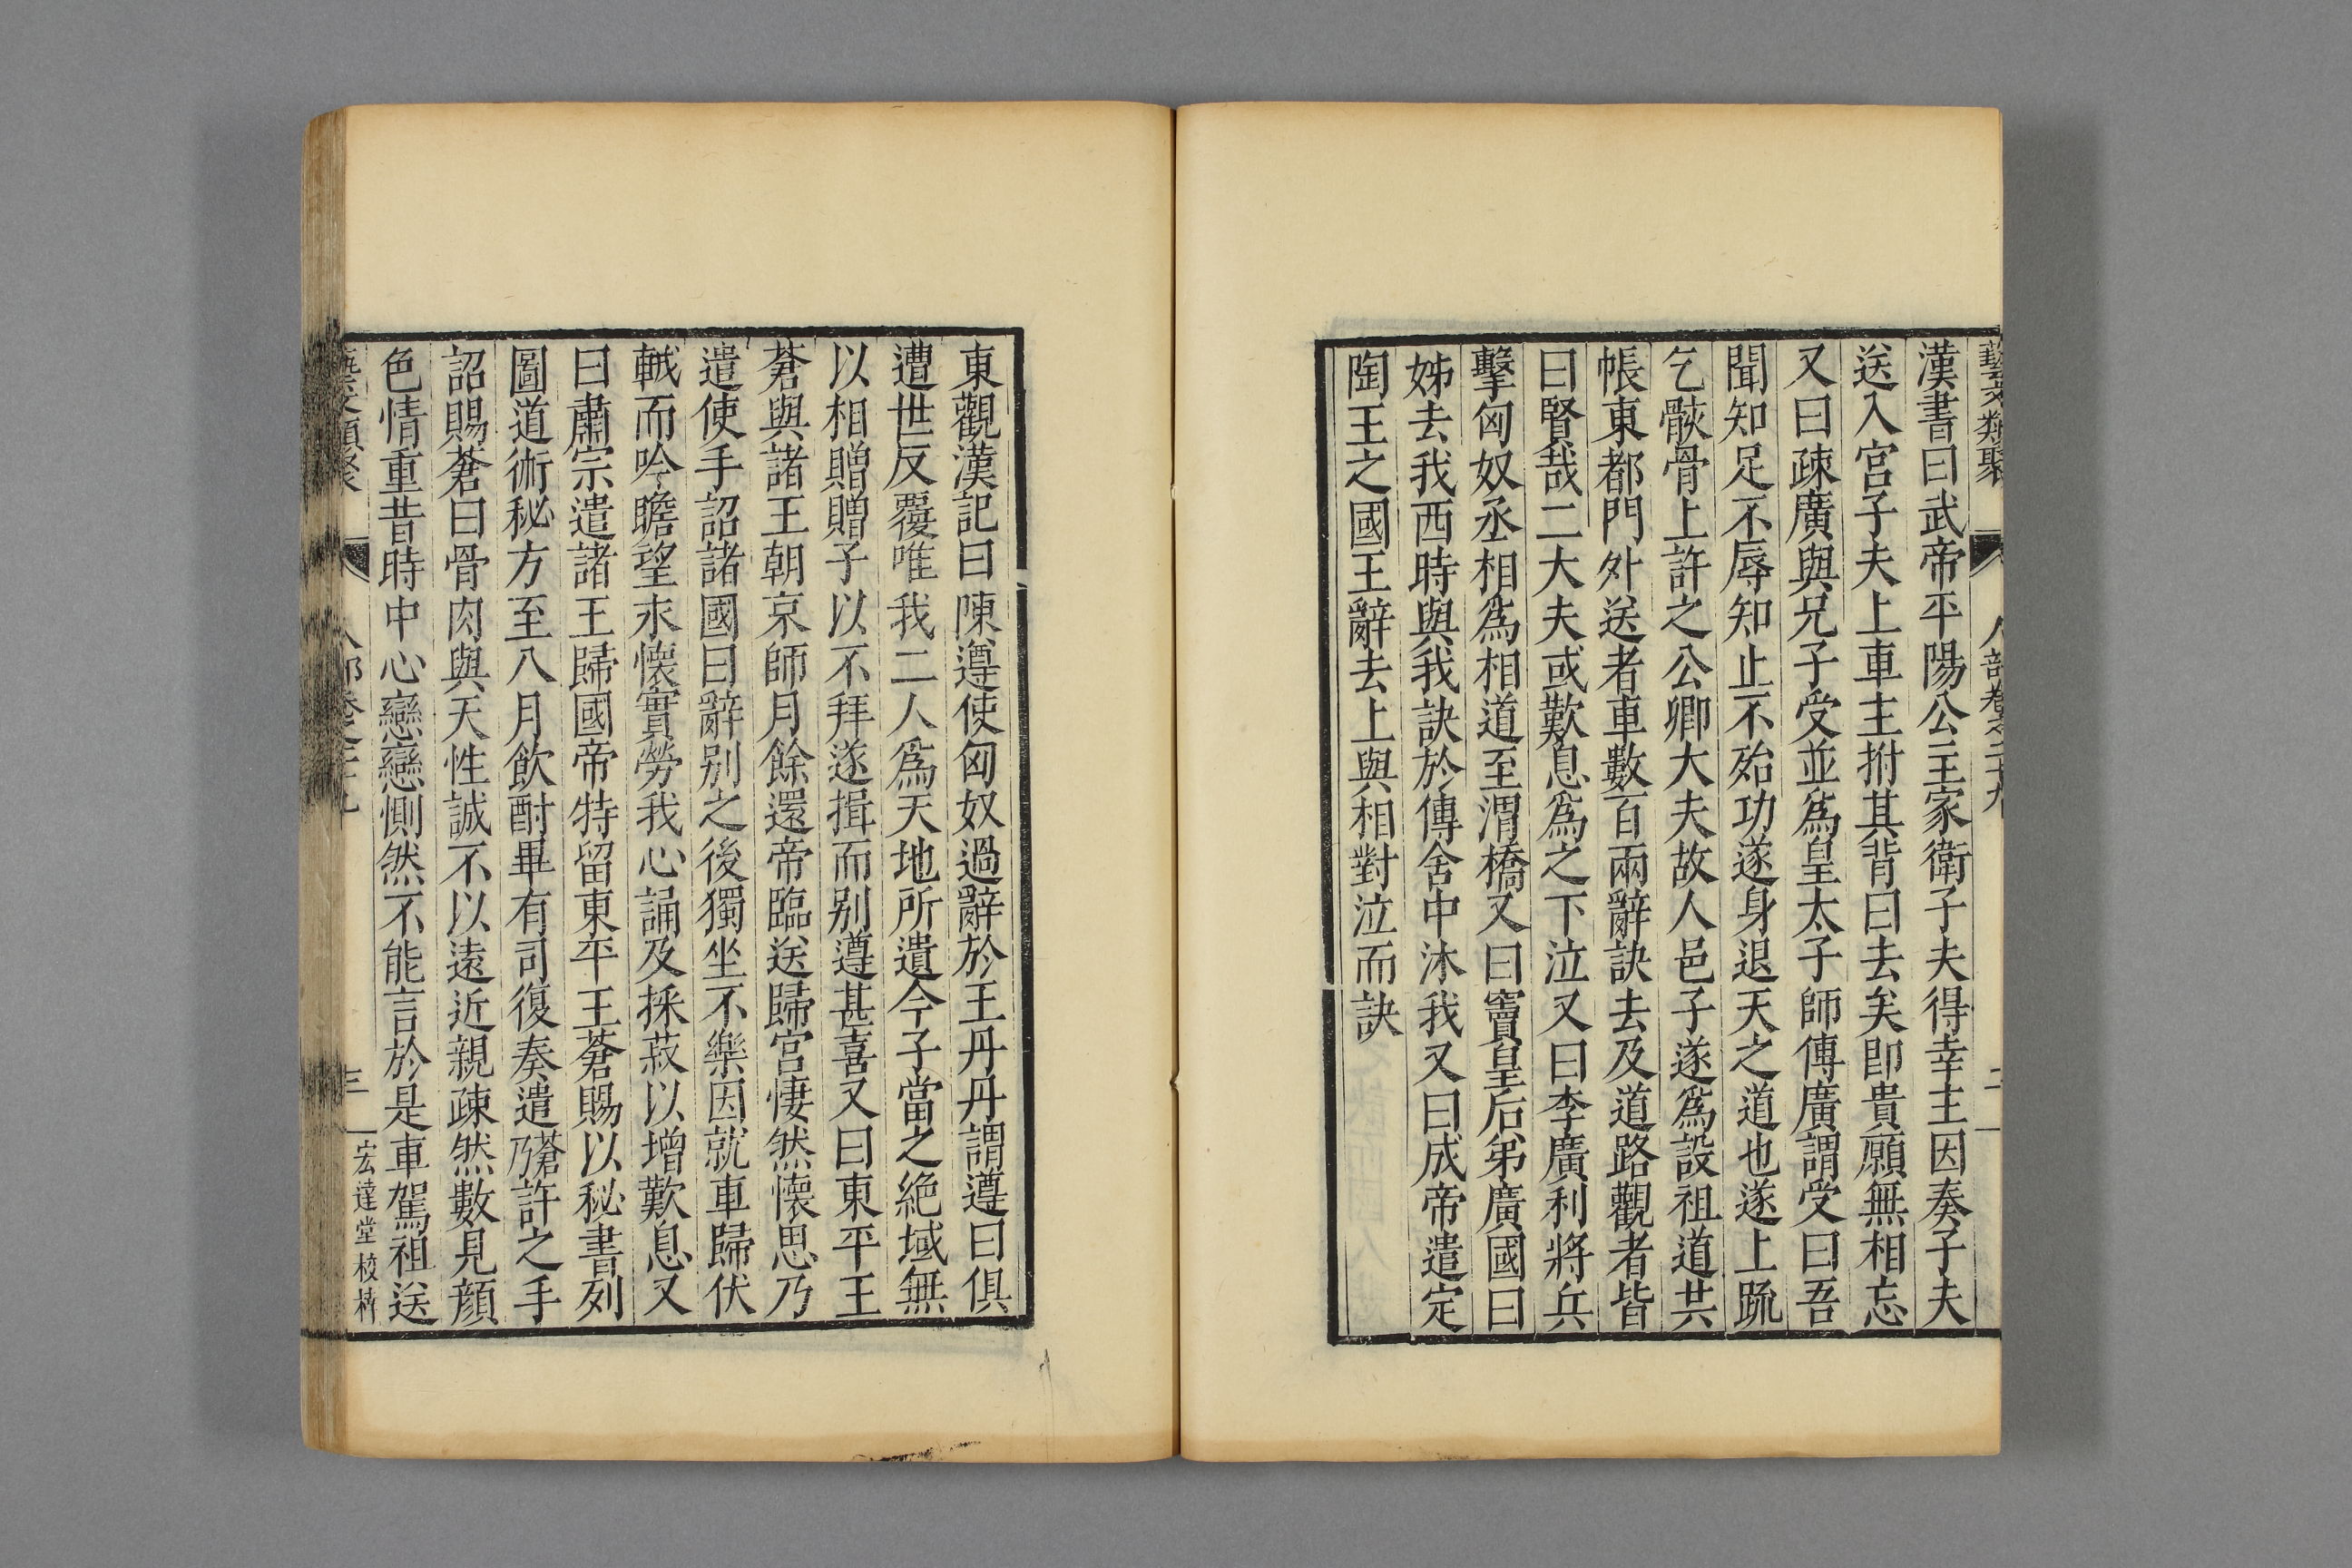 藝文類聚 人部卷之二十九 二
漢書曰武帝平陽公主家衛子夫得幸主因奏子夫
送入宫子夫上車主拊其背曰去矣即貴願無相忘
又曰疎廣與兄子受並爲皇太子師傅廣謂受曰吾
聞知足不辱知止不殆功遂身退天之道也遂上疏
乞骸骨上許之公卿大夫故人邑子遂爲設祖道共
帳東都門外送者車數百兩辭訣去及道路觀者皆
曰賢哉二大夫或歎息爲之下泣又曰李廣利將兵
擊匈奴丞相爲相道至渭橋又曰竇皇后弟廣國曰
姊去我西時與我訣於傳舍中沐我又曰成帝遣定
陶王之國王辭去上與相對泣而訣
東觀漢記曰陳遵使匈奴過辭於王丹丹謂遵曰俱
遭世反覆唯我二人爲天地所遺今子當之絶域無
以相贈贈子以不拜遂揖而别遵甚喜又曰東平王
蒼與諸王朝京師月餘還帝臨送歸宫悽然懷思乃
遣使手詔諸國曰辭别之後獨坐不樂因就車歸伏
軾而吟瞻望永懷實勞我心誦及採菽以增歎息又
曰肅宗遣諸王歸國帝特留東平王蒼賜以秘書列
圖道術秘方至八月飲酎畢有司復奏遣蒼乃許之手
詔賜蒼曰骨肉與天性誠不以遠近親疎然數見顔
色情重昔時中心戀戀惻然不能言於是車駕祖送
藝文類聚 人部卷之二十九 三 宏達堂校栞